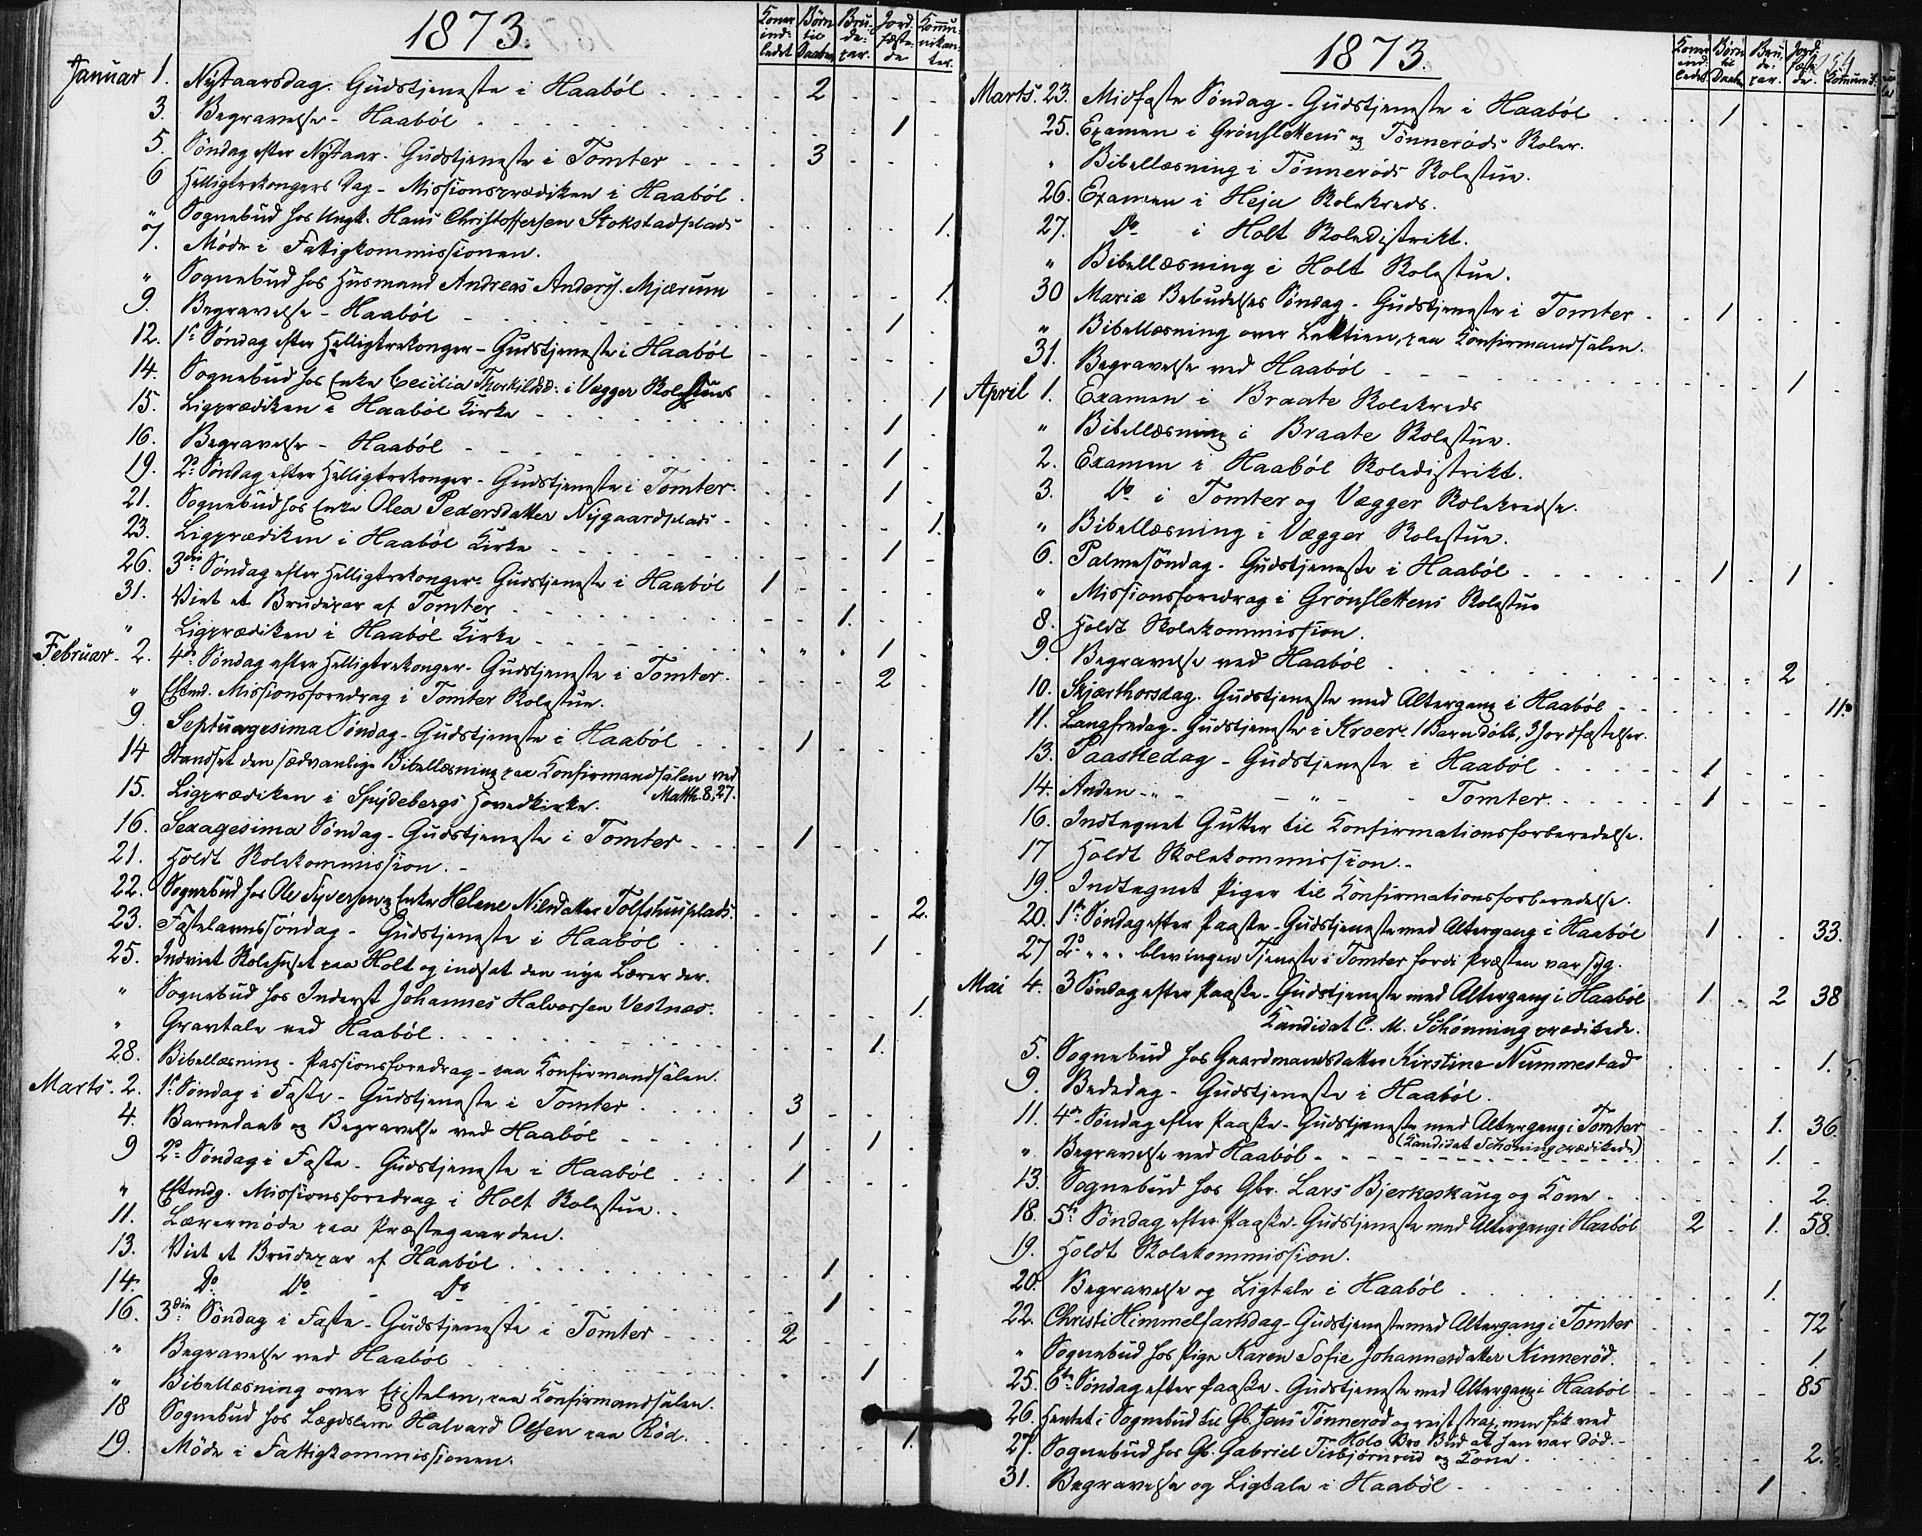 1873.
Koner indledet
Børn til Daaben
Brudepar.
Jordfæstede
Kommunikanter.
Januar 1. Nytaarsdag. Gudstjeneste i Haabøl 2
3. Begravelse - Haabøl 1
5. Søndag efter Nytaar. Gudstjeneste i Tomter 3
6 Helligtrekongers Dag - Missionsprædiken i Haabøl.
" Sognebud hos Ungk. Hans Christoffersen Stokstadplads 1.
7. Møde i Fattigkommissionen.
" Sognebud hos Husmand Andreas Anders. Mjærum 1.
9. Begravelse - Haabøl 1
12. 1e Søndag efter Helligtrekonger - Gudstjeneste i Haabøl
14. Sognebud hos Enke Cecilia Thorkildsd. i Vægger Skolestues 1
15. Ligprædiken i Haabøl Kirke 1
16. Begravelse - Haabøl 1
19. 2n Søndag efter Helligtrekonger - Gudstjeneste i Tomter. 1
21. Sognebud hos Enke Olea Pedersdatter Nygaardsplads 1.
23. Ligprædiken i Haabøl Kirke 1
26. 3die Søndag efter Helligtrekonger. Gudstjeneste i Haabøl 1
31. Viet et Brudepar af Tomter 1.
" Ligprædiken i Haabøl Kirke " " " 1
Februar 2. 4de Søndag efter Helligtrekonger - Gudstjeneste i Tomter. 2
" Eftmd. Missionsforedrag i Tomter Skolestue.
9. Septuagesima Søndag - Gudstjeneste i Haabøl 1
14 Standset den sædvanlige Bibellæsning paa Konfirmandsalen ved
Matth. 8, 27.
15. Ligprædiken i Spydebergs Hovedkirke.
16. Sexagesima Søndag - Gudstjeneste i Tomter 1
21. Holdt Skolekommission.
22. Sognebud hos Ole Syversen og Enke Helene Nilsdatter Tolfshusplads. 2.
23. Fastelavnssøndag - Gudstjeneste i Haabøl 1
25. Indviet Skolehuset paa Holt og indsat den nye Lærer der.
" Sognebud hos Inderst Johannes Halvorsen Vestnes. 1.
" Gravtale ved Haabøl. 1.
28. Bibellæsning - Passionsforedrag - paa Konfirmandsalen.
Marts. 2. 1e Søndag i Faste - Gudstjeneste i Tomter 3
4. Barnedaab og Begravelse ved Haabøl 1 1
9 2n Søndag i Faste - Gudstjeneste i Haabøl 1
" Eftmdg. Missionsforedrag i Holt Skolestue.
11. Lærermøde paa Præstegaarden.
13. Viet et Brudepar af Haabøl 1
14. Do Do Do 1
16. 3die Søndag i Faste - Gudstjeneste i Tomter 2
" Begravelse ved Haabøl 1
" Bibellæsning over Epistelen, paa Konfirmandsalen.
18 Sognebud hos Lægdslem Halvard Olsen paa Rød. 1.
19. Møde i Fattigkommissionen.
1873.
Koner indledet
Børn til Daaben
Brudepar.
Jordfæstede.
Kommunik.
Marts. 23. Midfaste Søndag - Gudstjeneste i Haabøl 1
25. Examen i Grønslettens og Tønnerøds Skoler.
" Bibellæsning i Tønnerøds Skolestue.
26. Examen i Heja Skolekreds.
27. Do i Holt Skoledistrikt.
" Bibellæsning i Holt Skolestue.
30 Mariæ Bebudelses Søndag - Gudstjeneste i Tomter 1
" Bibellæsning over Lektien, paa Konfirmandsalen.
31. Begravelse ved Haabøl 1
April 1. Examen i Braate Skolekreds
" Bibellæsning i Braate Skolestue.
2. Examen i Haabøl Skoledistrikt.
3. Do i Tomter og Vægger Skolekredse.
" Bibellæsning i Vægger Skolestue.
6. Palmesøndag - Gudstjeneste i Haabøl 1 1
" Missionsforedrag i Grønslettens Skolestue
8. Holdt Skolekommission.
9. Begravelse ved Haabøl 2
10. Skjærthorsdag. Gudstjeneste med Altergang i Haabøl 11.
11. Langfredag - Gudstjeneste i Kroer. 1 Barn døbt, 3 Jordfæstelser.
13. Paaskedag - Gudstjeneste i Haabøl 1
14. Anden " " Tomter. 1
16. Indtegnet Gutter til Konfirmationsforberedelse.
17 Holdt Skolekommission.
19. Indtegnet Piger til Konfirmationsforberedelse.
20. 1e Søndag efter Paaske - Gudstjeneste med Altergang i Haabøl 1 33.
27 2n " " " blev ingen Tjeneste i Tomter fordi Præsten var syg.
Mai 4. 3 Søndag efter Paaske - Gudstjeneste med Altergang i Haabøl 1 2 38
Kandidat C. M. Schønning prædikede.
5. Sognebud hos Gaardmandsdatter Kirstine Nummestad 1.
9. Bededag - Gudstjeneste i Haabøl.
11. 4de Søndag efter Paaske - Gudstjeneste med Altergang i Tomter 1. 36
(Kandidat Schønning prædikede)
" Begravelse ved Haabøl 1.
13. Sognebud hos Gbr. Lars Bjerkeskaug og Kone 2
18. 5te Søndag efter Paaske - Gudstjeneste med Altergang i Haabøl 2 1. 58.
19. Holdt Skolekommission.
20. Begravelse og Ligtale i Haabøl 1.
22. Christi Himmelfartsdag - Gudstjeneste med Altergang i Tomter 72
" Sognebud hos Pige Karen Sofie Johannesdatter Kinnerød. 1
25. 6te Søndag efter Paaske - Gudstjeneste med Altergang i Haabøl 85
26. Hentet i Sognebud til Gb. Jens Tønnerød og reist strax, men fik ved
Holo Bro Bud at han var død.
27. Sognebud hos Gb. Gabriel Tisbjørnrud og Kone 2.
31. Begravelse og Ligtale i Haabøl 1